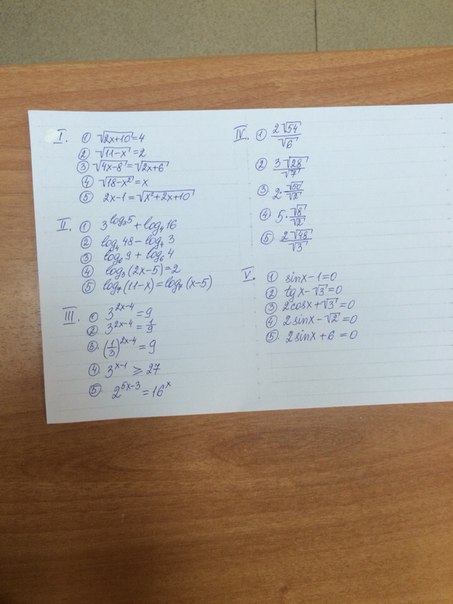 I. ① √(2x+10) = 4
② √(11-x) = 2
③ √(4x-8) = √(2x+6)
④ √(18-x²) = x
⑤ 2x-1 = √(x²+2x+10)
II. ① 3^(log₃5) + log₄16
② log₄48 - log₄3
③ log₆9 + log₆4
④ log₃(2x-5) = 2
(11-x) = (x-5)
III. ① 3^(2x-4) = 9
② 3^(2x-4) = 1/9
③ (1/3)^(2x-4) = 9
④ 3^(x-1) ≥ 27
⑤ 2^(5x-3) = 16^x
IV. ① 2√54/√6
② 3√28/√7
③ 2·/√2
④ 5·√8/√2
⑤ 2√48/√3
V. ① sinx-1=0
② tgx-√3=0
③ 2cosx+√3=0
④ 2sinx-√2=0
⑤ 2sinx+6=0